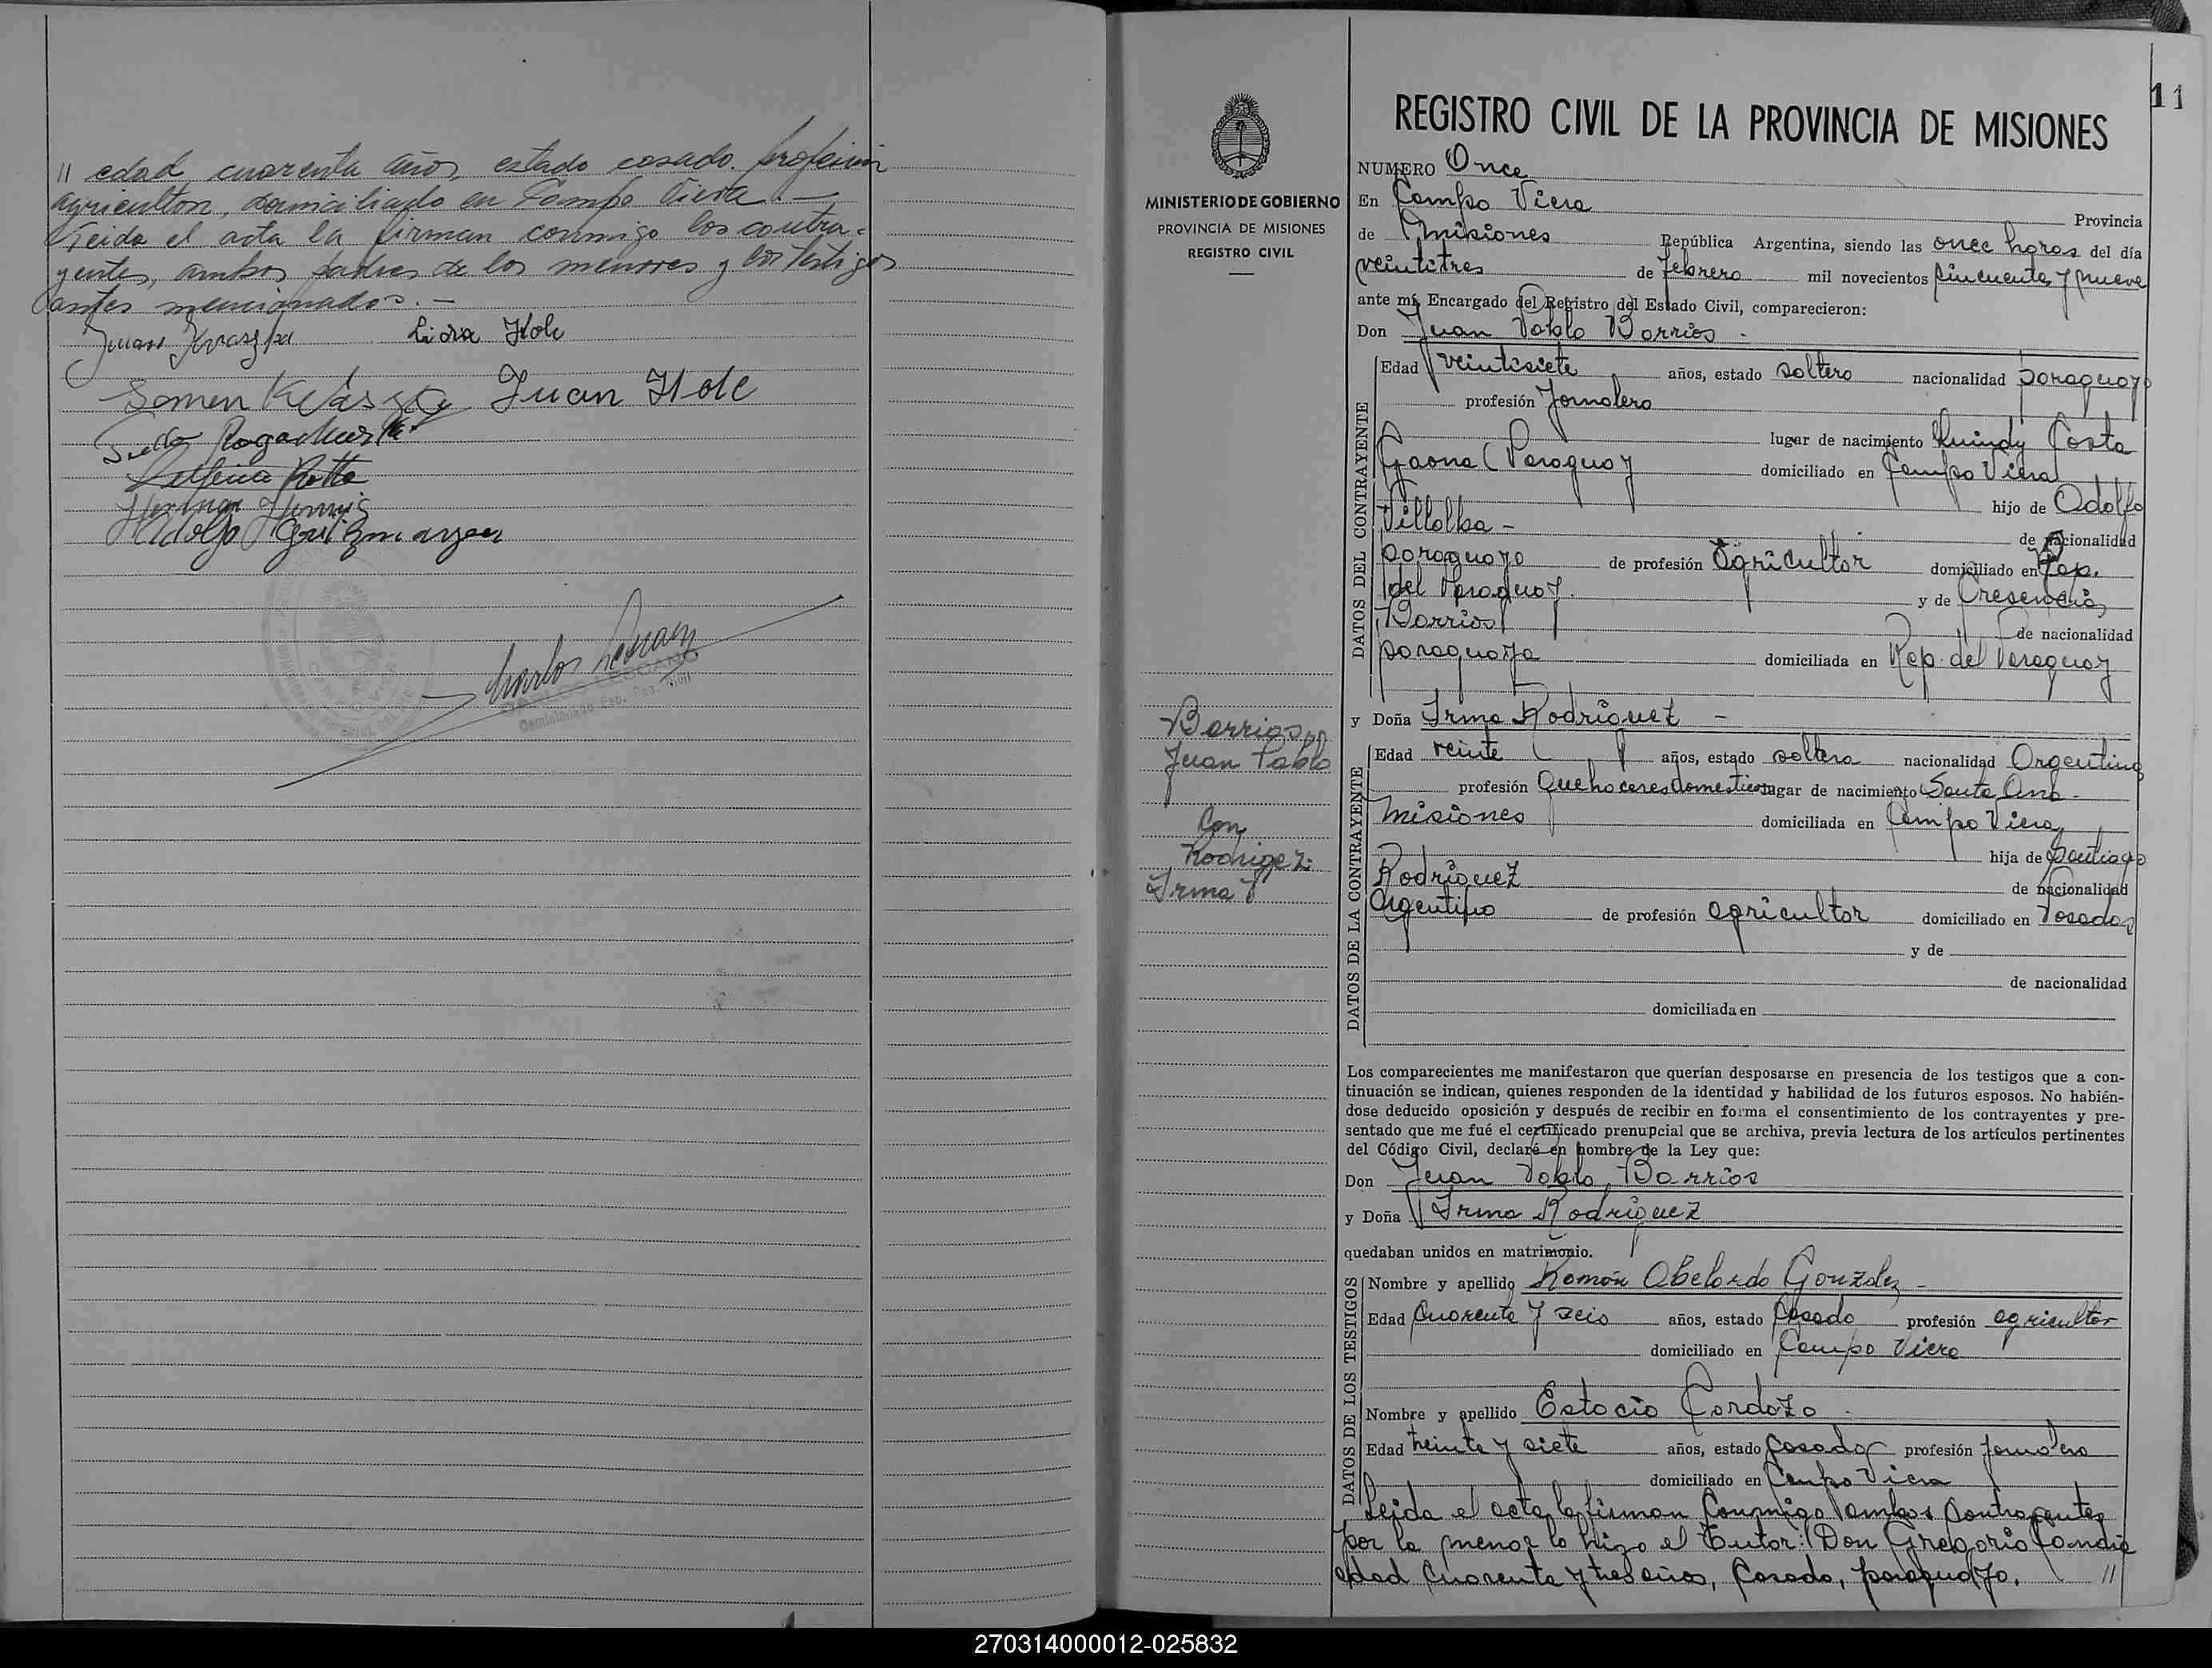 // edad cuarenta años, estado casado. profesión
agricultor, domiciliado en Campo Viera. —
Leida el acta la firman conmigo los contra=
yentes, ambos padres de los menores y los testigos
antes mencionados. —
Juan Lidia Hole
Semen Juan Hole
Rotta
Herman Hennig
Adolfo
Carlos
11
MINISTERIO DE GOBIERNO
PROVINCIA DE MISIONES
REGISTRO CIVIL
Barrios
Juan Pablo
Con
Rodrigez
Irma
REGISTRO CIVIL DE LA PROVINCIA DE MISIONES
NUMERO Once
En Campo Viera Provincia
de Misiones República Argentina, siendo las once horas del día
veintitres de febrero mil novecientos cincuenta y nueve
ante mí, Encargado del Registro del Estado Civil, comparecieron:
Don Juan Pablo Barrios -
DATOS DEL CONTRAYENTE
Edad veintisiete años, estado soltero nacionalidad paraguayo
profesión Jornalero
lugar de nacimiento Quindy Costa
Gaona (Paraguay domiciliado en Campo Viera
hijo de Adolfo
Villalba - de nacionalidad
paraguayo de profesión Agricultor domiciliado en Rep.
del Paraguay. y de Cresencia
Barrios de nacionalidad
paraguaya domiciliada en Rep. del Paraguay
y Doña Irma Rodríguez -
DATOS DE LA CONTRAYENTE
Edad veinte años, estado soltera nacionalidad Argentina
profesión Quehaceres domesticos lugar de nacimiento Santa Ana -
Misiones domiciliada en Campo Viera
hija de Santiago
Rodríguez de nacionalidad
Argentino de profesión agricultor domiciliado en Posadas
y de
de nacionalidad
domiciliada en
Los comparecientes me manifestaron que querían desposarse en presencia de los testigos que a con-
tinuación se indican, quienes responden de la identidad y habilidad de los futuros esposos. No habién-
dose deducido oposición y después de recibir en forma el consentimiento de los contrayentes y pre-
sentado que me fué el certificado prenupcial que se archiva, previa lectura de los artículos pertinentes
del Código Civil, declaré en nombre de la Ley que:
Don Juan Pablo Barrios
y Doña Irma Rodríguez
quedaban unidos en matrimonio.
DATOS DE LOS TESTIGOS
Nombre y apellido Román Abelardo González -
Edad Cuarenta y seis años, estado Casado profesión agricultor
domiciliado en Campo Viera
Nombre y apellido Estacio Cardozo
Edad treinta y siete años, estado Casado profesión jornalero
domiciliado en Campo Viera
Leida el acta la firman conmigo ambos contrayentes
por la menor lo hizo el Tutor: Don Gregorio
edad cuarenta y tres años, casado, paraguayo. //
270314000012-025832